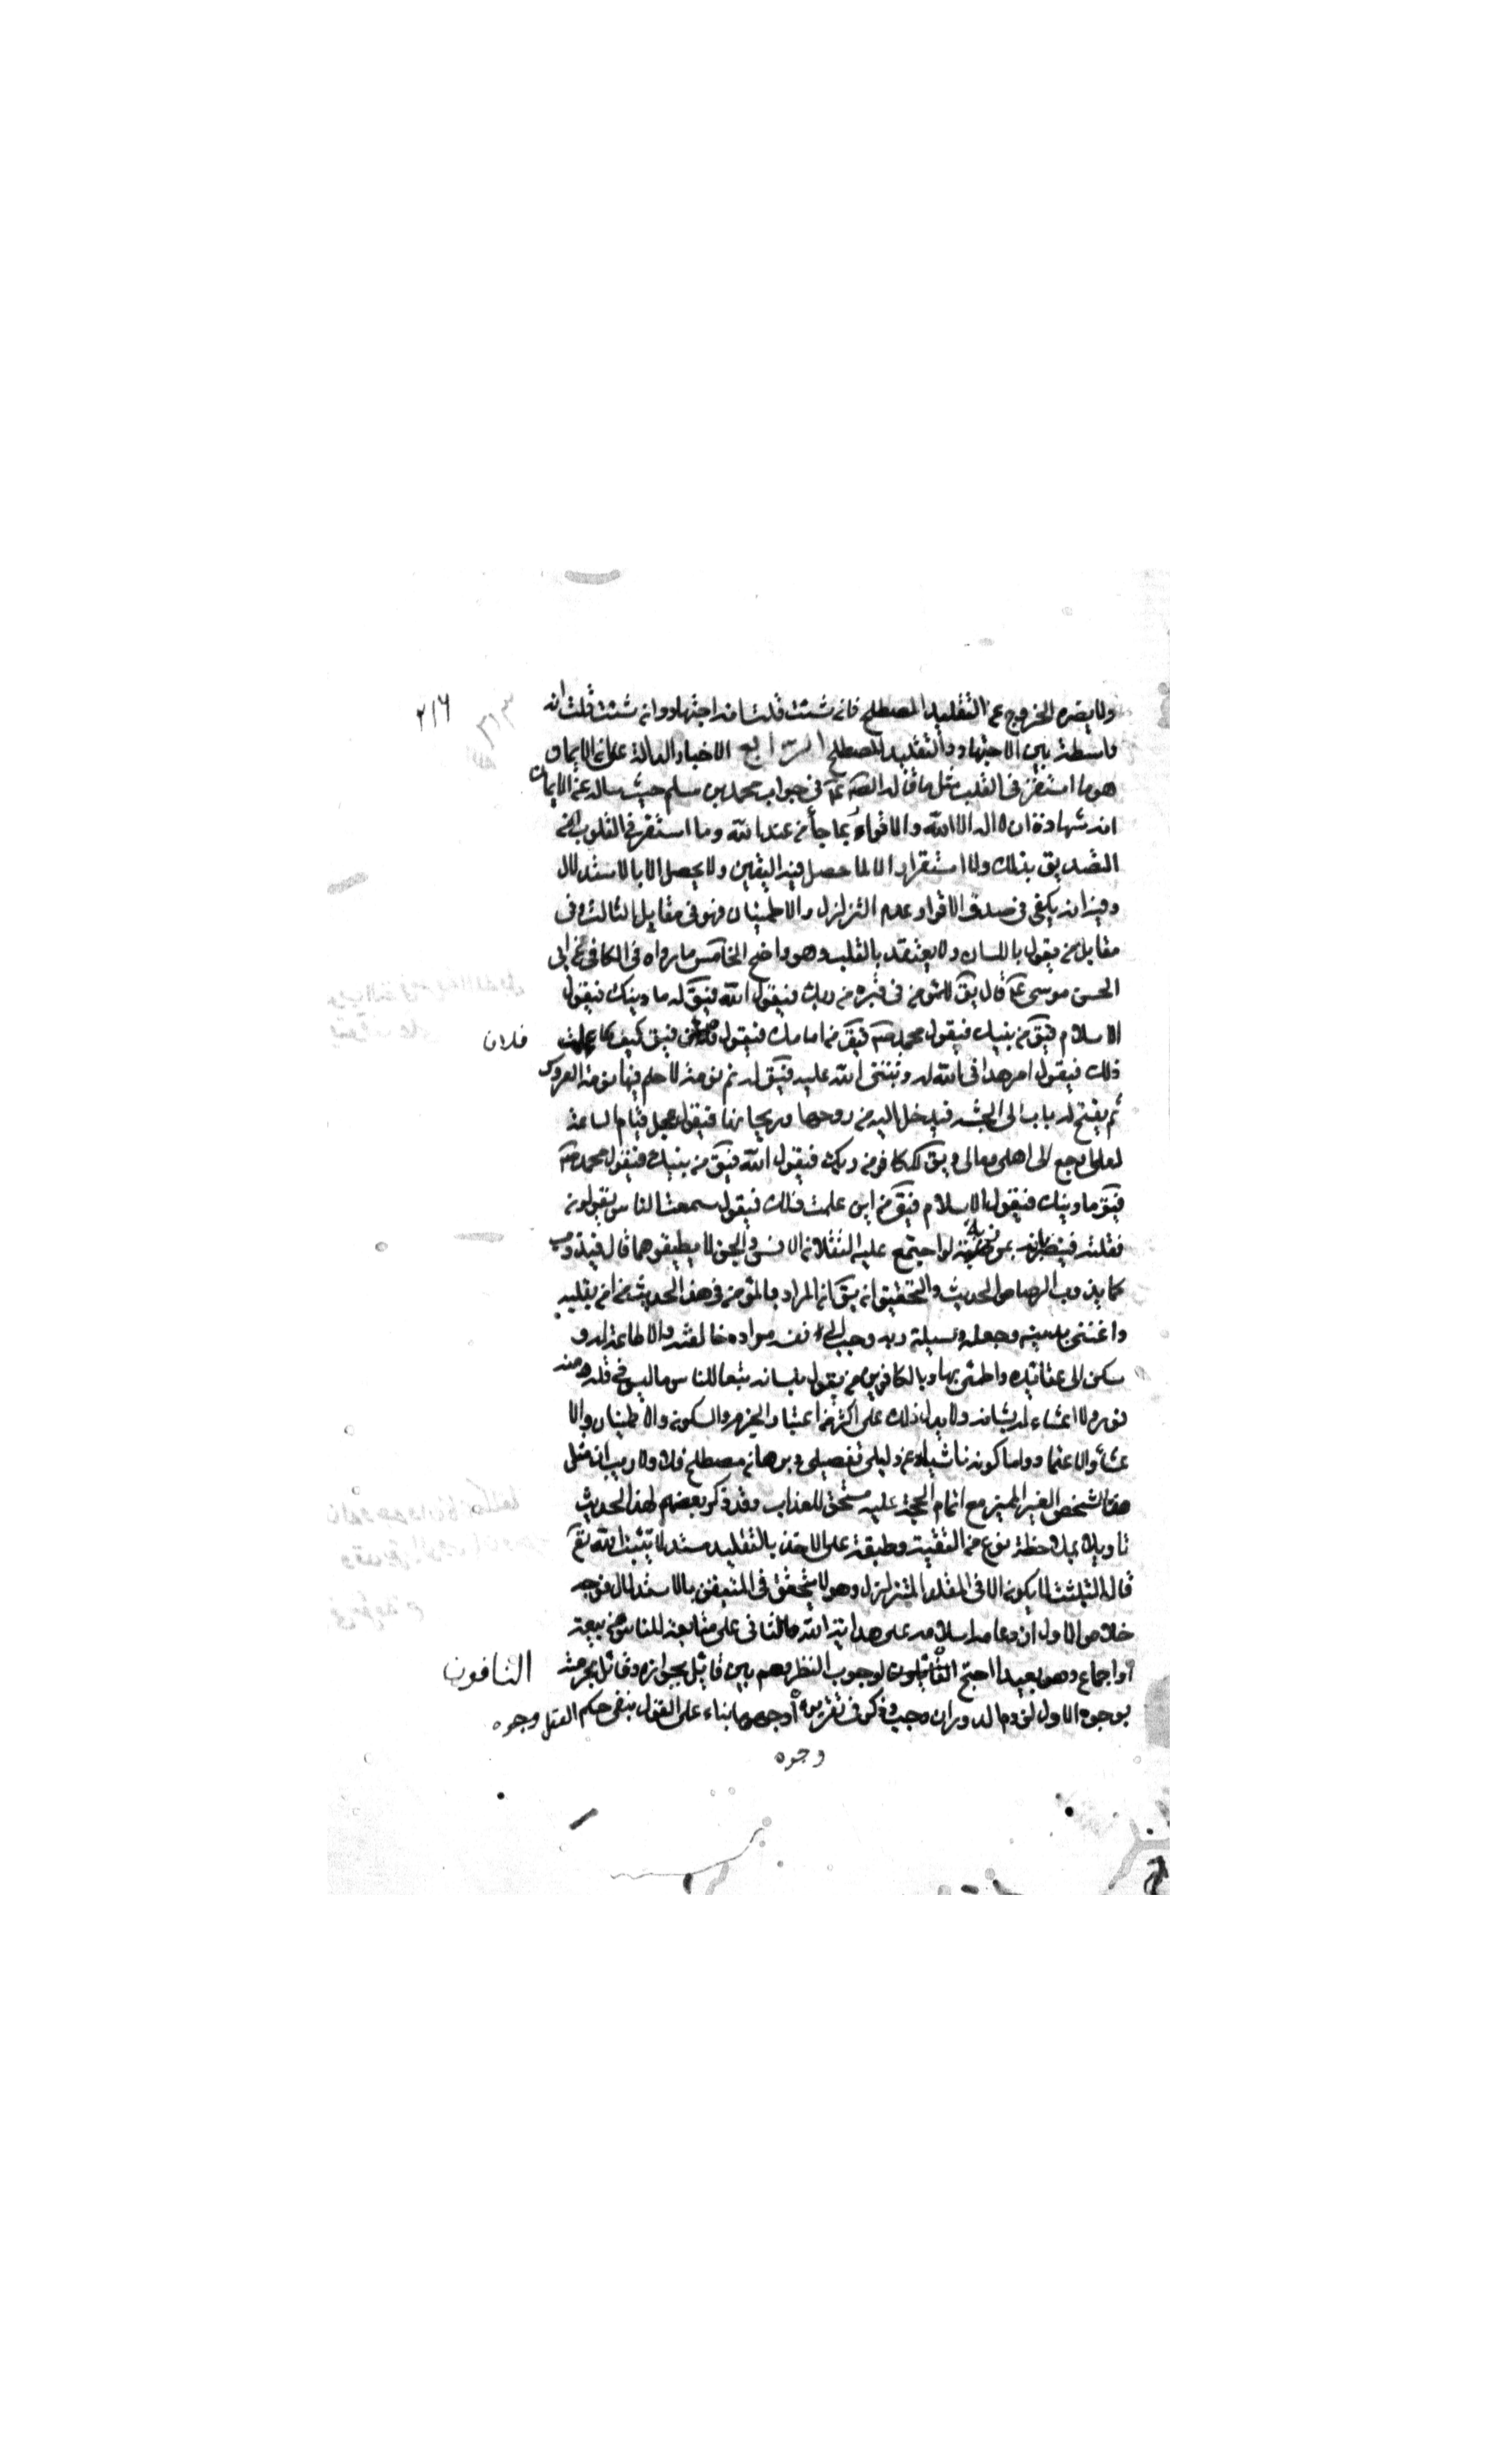 ٢١٦
ولا يضره الخروج عن التقليد المصطلح فان شئت قلت انه اجتهاد وان شئت قلت انه
واسطة بين الاجتهاد والتقليد المصطلح الرابع الاخبار الدالة على ان الايمان
هو ما استقر في القلب مثل ما قاله الصم عم في جواب محمد بن مسلم حيث ساله عن الايمان
انه شهادة ان لا اله الا الله والاقرار بما جاء من عند الله وما استقر في القلوب من
التصديق بذلك ولا استقرار الا لما حصل فيه اليقين ولا يحصل الا بالاستدلال
وفيه انه يكفي في صدق الاقرار عدم التزلزل والاطمينان فهو في مقابل الثالث وفي
مقابل من يقول باللسان ولا يعتقد بالقلب وهو واضح الخامس ما رواه في الكافي عن ابي
الحسن موسى عم قال يق للمؤمن في قبره من ربك فيقول الله فيق له ما دينك فيقول
الاسلام فيق من نبيك فيقول محمد صم فيق من امامك فيقول فلان فيق كيف علمت
فلان
ذلك فيقول امر هداني الله له وثبتني الله عليه فيق له نم نومة لا حلم فيها نومة العروس
ثم يفتح له باب الى الجنة فيدخل اليه من روحها وريحانها فيقول عجل قيام الساعة
لعلي ارجع الى اهلي ومالي ويق للكافر من ربك فيقول الله فيق من نبيك فيقول محمد صم
فيق ما دينك فيقول الاسلام فيق من اين علمت ذلك فيقول سمعت الناس يقولون
فقلته فيضربانه بمرزبة لو اجتمع عليه الثقلان الانس والجن لا يطيقوها قال فيذوب
كما يذوب الرصاص الحديث والتحقيق ان يق ان المراد بالمؤمن في هذا الحديث من امن بقلبه
واعتنى بدينه وجعله وسيلة ربه وجب نفسه خالفته والاطاعة له و
سكن الى عقائده واطمئن بها وبالكافر من يقول بلسانه تبعا للناس ما ليس في قلبه منه
نور ولا اعتناء له بشانه ولا يدل ذلك على اكثر من اعتبار الجزم والسكون والاطمينان والا
عتناء والاعتماد واما كونه ناشيا عن دليل تفصيلي وبرهان مصطلح فلا ولا ريب ان مثل
هذا الشخص الغير المميز مع اتمام الحجة عليه مستحق للعذاب وقد ذكر بعضهم لهذا الحديث
تاويلا بملاحظة نوع من التقية وطبقه على الاخذ بالتقليد مستدلا بتثبت الله تع
قال التثبت لا يكون الا في المقلد المتزلزل وهو لا يتحقق في المتيقن بالاستدلال فوجه
خلاص الاول ان دعامه اسلامه على هداية الله والثاني على متابعة للناس من بيعة
او اجماع وهو بعيد احتج القائلون لوجوب النظر وهم بين قائل بجوازه وقائل بحرمته
النافون
بوجوه الاول لزوم الدور ان وجب وذكر في تقريره وجوها بناء على القول بنفي حكم العقل وجوه
وجوه